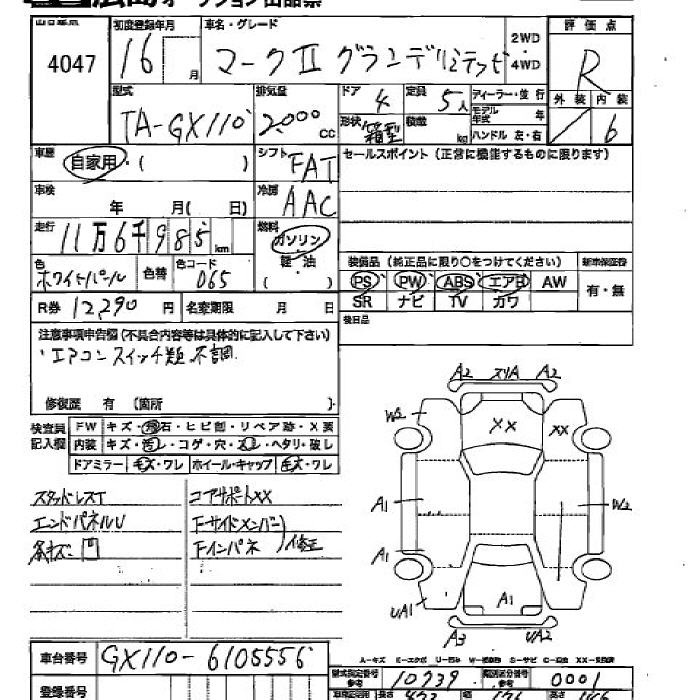 4047
初度登録年月
16 月
車名・グレード
マークⅡ グランデリミテッド
2WD
4WD
評価点
R
外装 内装
6
型式
TA-GX110
排気量
2000 CC
ドア
4
定員
5人
ディーラー・並行
形状
箱型
積載
kg
モデル年式
年
ハンドル 左・右
車歴
自家用・( )
シフト
FAT
セールスポイント (正常に機能するものに限ります)
車検
年 月( 日)
冷房
AAC
走行
11万6千985 km
燃料
ガソリン
軽・油
( )
色
ホワイトパール
色替
色コード
065
装備品(純正品に限り○をつけてください)
新車保証書
PS PW ABS エアB AW
SR ナビ TV カワ
有・無
R券 12,290 円
名変期限 月 日
後日品
注意事項申告欄(不具合内容等は具体的に記入して下さい)
・エアコンスイッチ類不調
修復歴 有 (箇所 )
検査員記入欄
FW キズ・飛石・ヒビ割・リペア跡・X要
内装 キズ・汚レ・コゲ・穴・ヘタリ・破レ
ドアミラー キズ・ワレ ホイール・キャップ キズ・ワレ
スタッドレスT
エンドパネルU
コアサポートXX
Fサイドメンバー
Fインパネ
修正
A2 A2
W2
XX XX
A1 W2
A1
UA1 A1
A3 UA2
A-キズ E-エクボ U-凹み W-補修跡 S-サビ C-腐食 XX-交換済
車台番号 GX110-6105556
型式指定番号 10739
類別区分番号 0001
登録番号